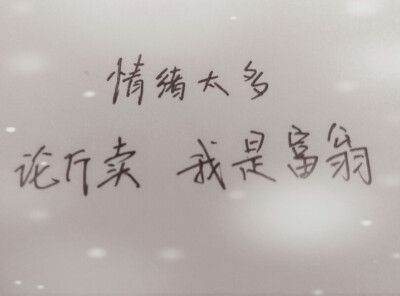 情绪太多
论斤卖 我是富翁